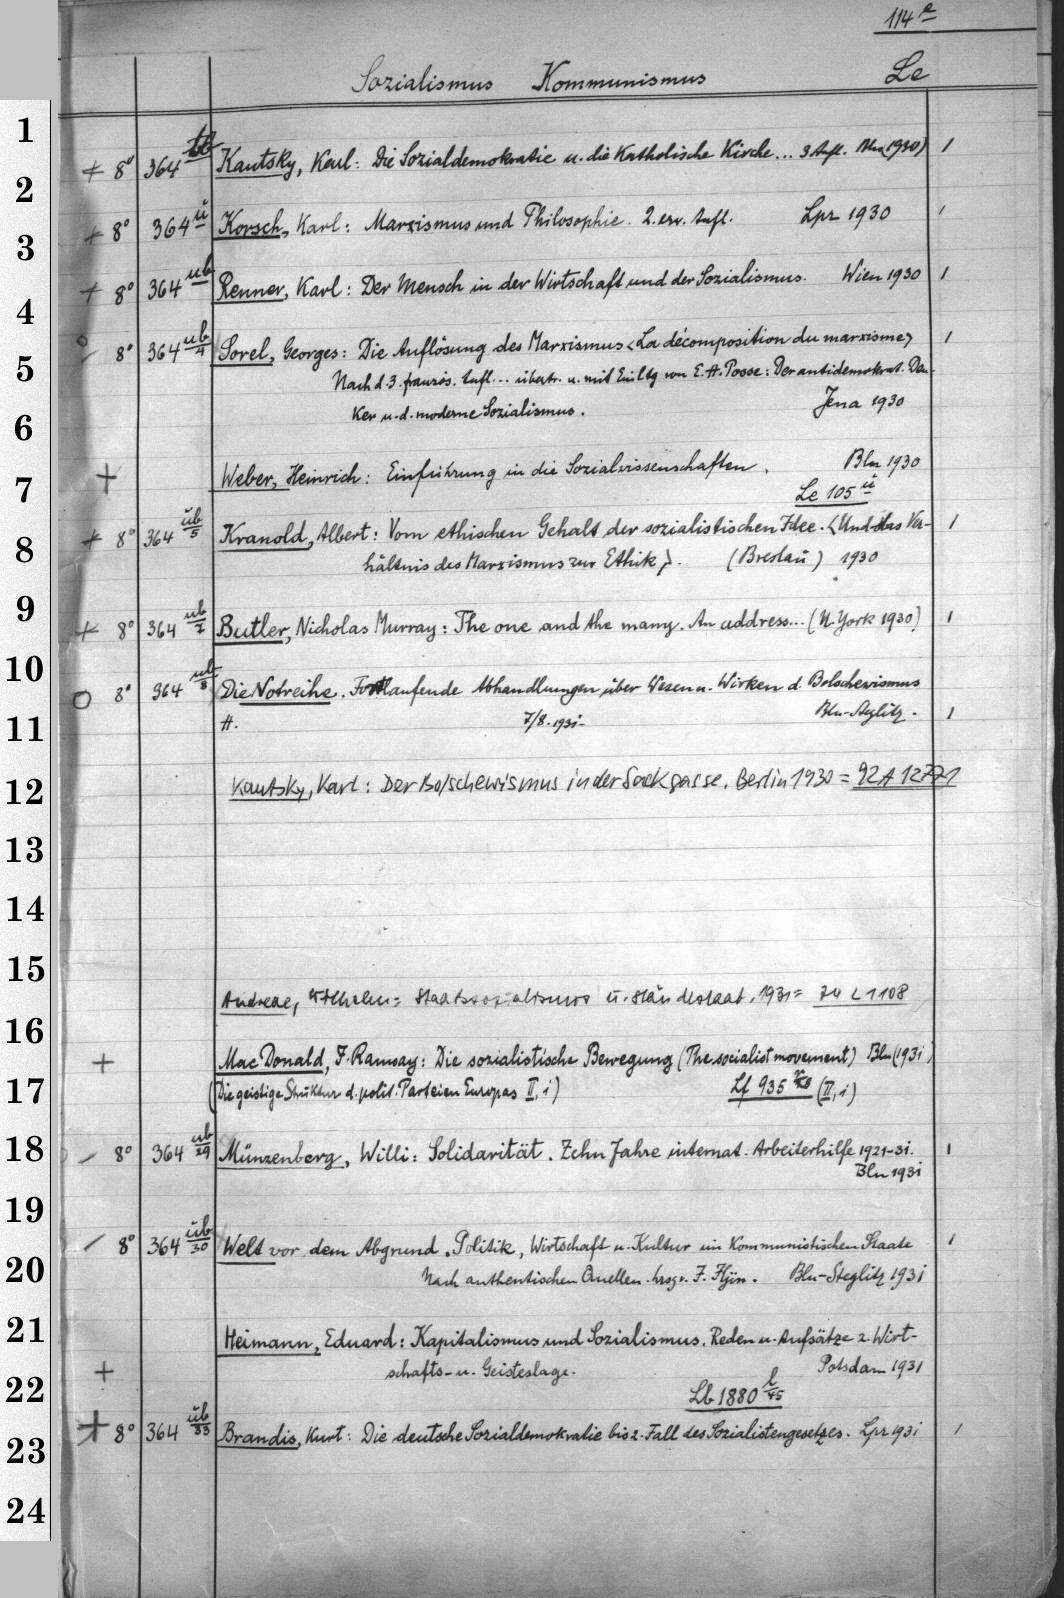 114e
Sozialismus Kommunismus Le
1
+ 8° 364 Kautsky, Karl: Die Sozialdemokratie u. die Katholische Kirche... 3 Aufl. Bln (1930) 1
2
+ 8° 364 ü Korsch, Karl: Marxismus und Philosophie. 2. erw. Aufl. Lpz 1930 1
3
+ 8° 364 ub Renner, Karl: Der Mensch in der Wirtschaft und der Sozialismus. Wien 1930 1
4
8° 364 ub/4 Sorel, Georges: Die Auflösung des Marxismus <La décomposition du marxisme> 1
5
Nach d. 3. französ. Aufl... übertr. u. mit Einltg von E. H. Posse: Der antidemokrat. Den-
ker u. d. moderne Sozialismus. Jena 1930
6
+ Weber, Heinrich: Einführung in die Sozialwissenschaften. Bln 1930
7
Le 105 ü
+ 8° 364 üb/5 Kranold, Albert: Vom ethischen Gehalt der sozialistischen Idee. <Und das Ver-
8
hältnis des Marxismus zur Ethik>. (Breslau) 1930 1
9
+ 8° 364 ub/7 Butler, Nicholas Murray: The one and the many. An address... (N. York 1930) 1
10
O 8° 364 ub/8 Die Notreihe. Fortlaufende Abhandlungen über Wesen u. Wirken d. Bolschewismus
11
H. 7/8. 1931- Bln-Steglitz. 1
12
Kautsky, Karl: Der Bolschewismus in der Sackgasse. Berlin 1930 = 92 A 12771
13
14
15
Andreae, Wilhelm: Staatssozialismus u. Ständestaat. 1931 = 74 L 1108
16
+ Mac Donald, J. Ramsay: Die sozialistische Bewegung (The socialist movement) Bln (1931)
17
(Die geistige Struktur d. polit. Parteien Europas II, 1) Lf 935 (II, 1)
18
8° 364 ub/29 Münzenberg, Willi: Solidarität. Zehn Jahre internat. Arbeiterhilfe 1921-31. 1
Bln 1931
19
8° 364 üb/30 Welt vor dem Abgrund. Politik, Wirtschaft u. Kultur im Kommunistischen Staate 1
20
Nach authentischen Quellen. hrsg. v. I. Iljin. Bln-Steglitz 1931
21
Heimann, Eduard: Kapitalismus und Sozialismus. Reden u. Aufsätze z. Wirt-
+ schafts- u. Geisteslage. Potsdam 1931
22
Lb 1880 l/45
+ 8° 364 üb/33 Brandis, Kurt: Die deutsche Sozialdemokratie bis z. Fall des Sozialistengesetzes. Lpz 1931 1
23
24